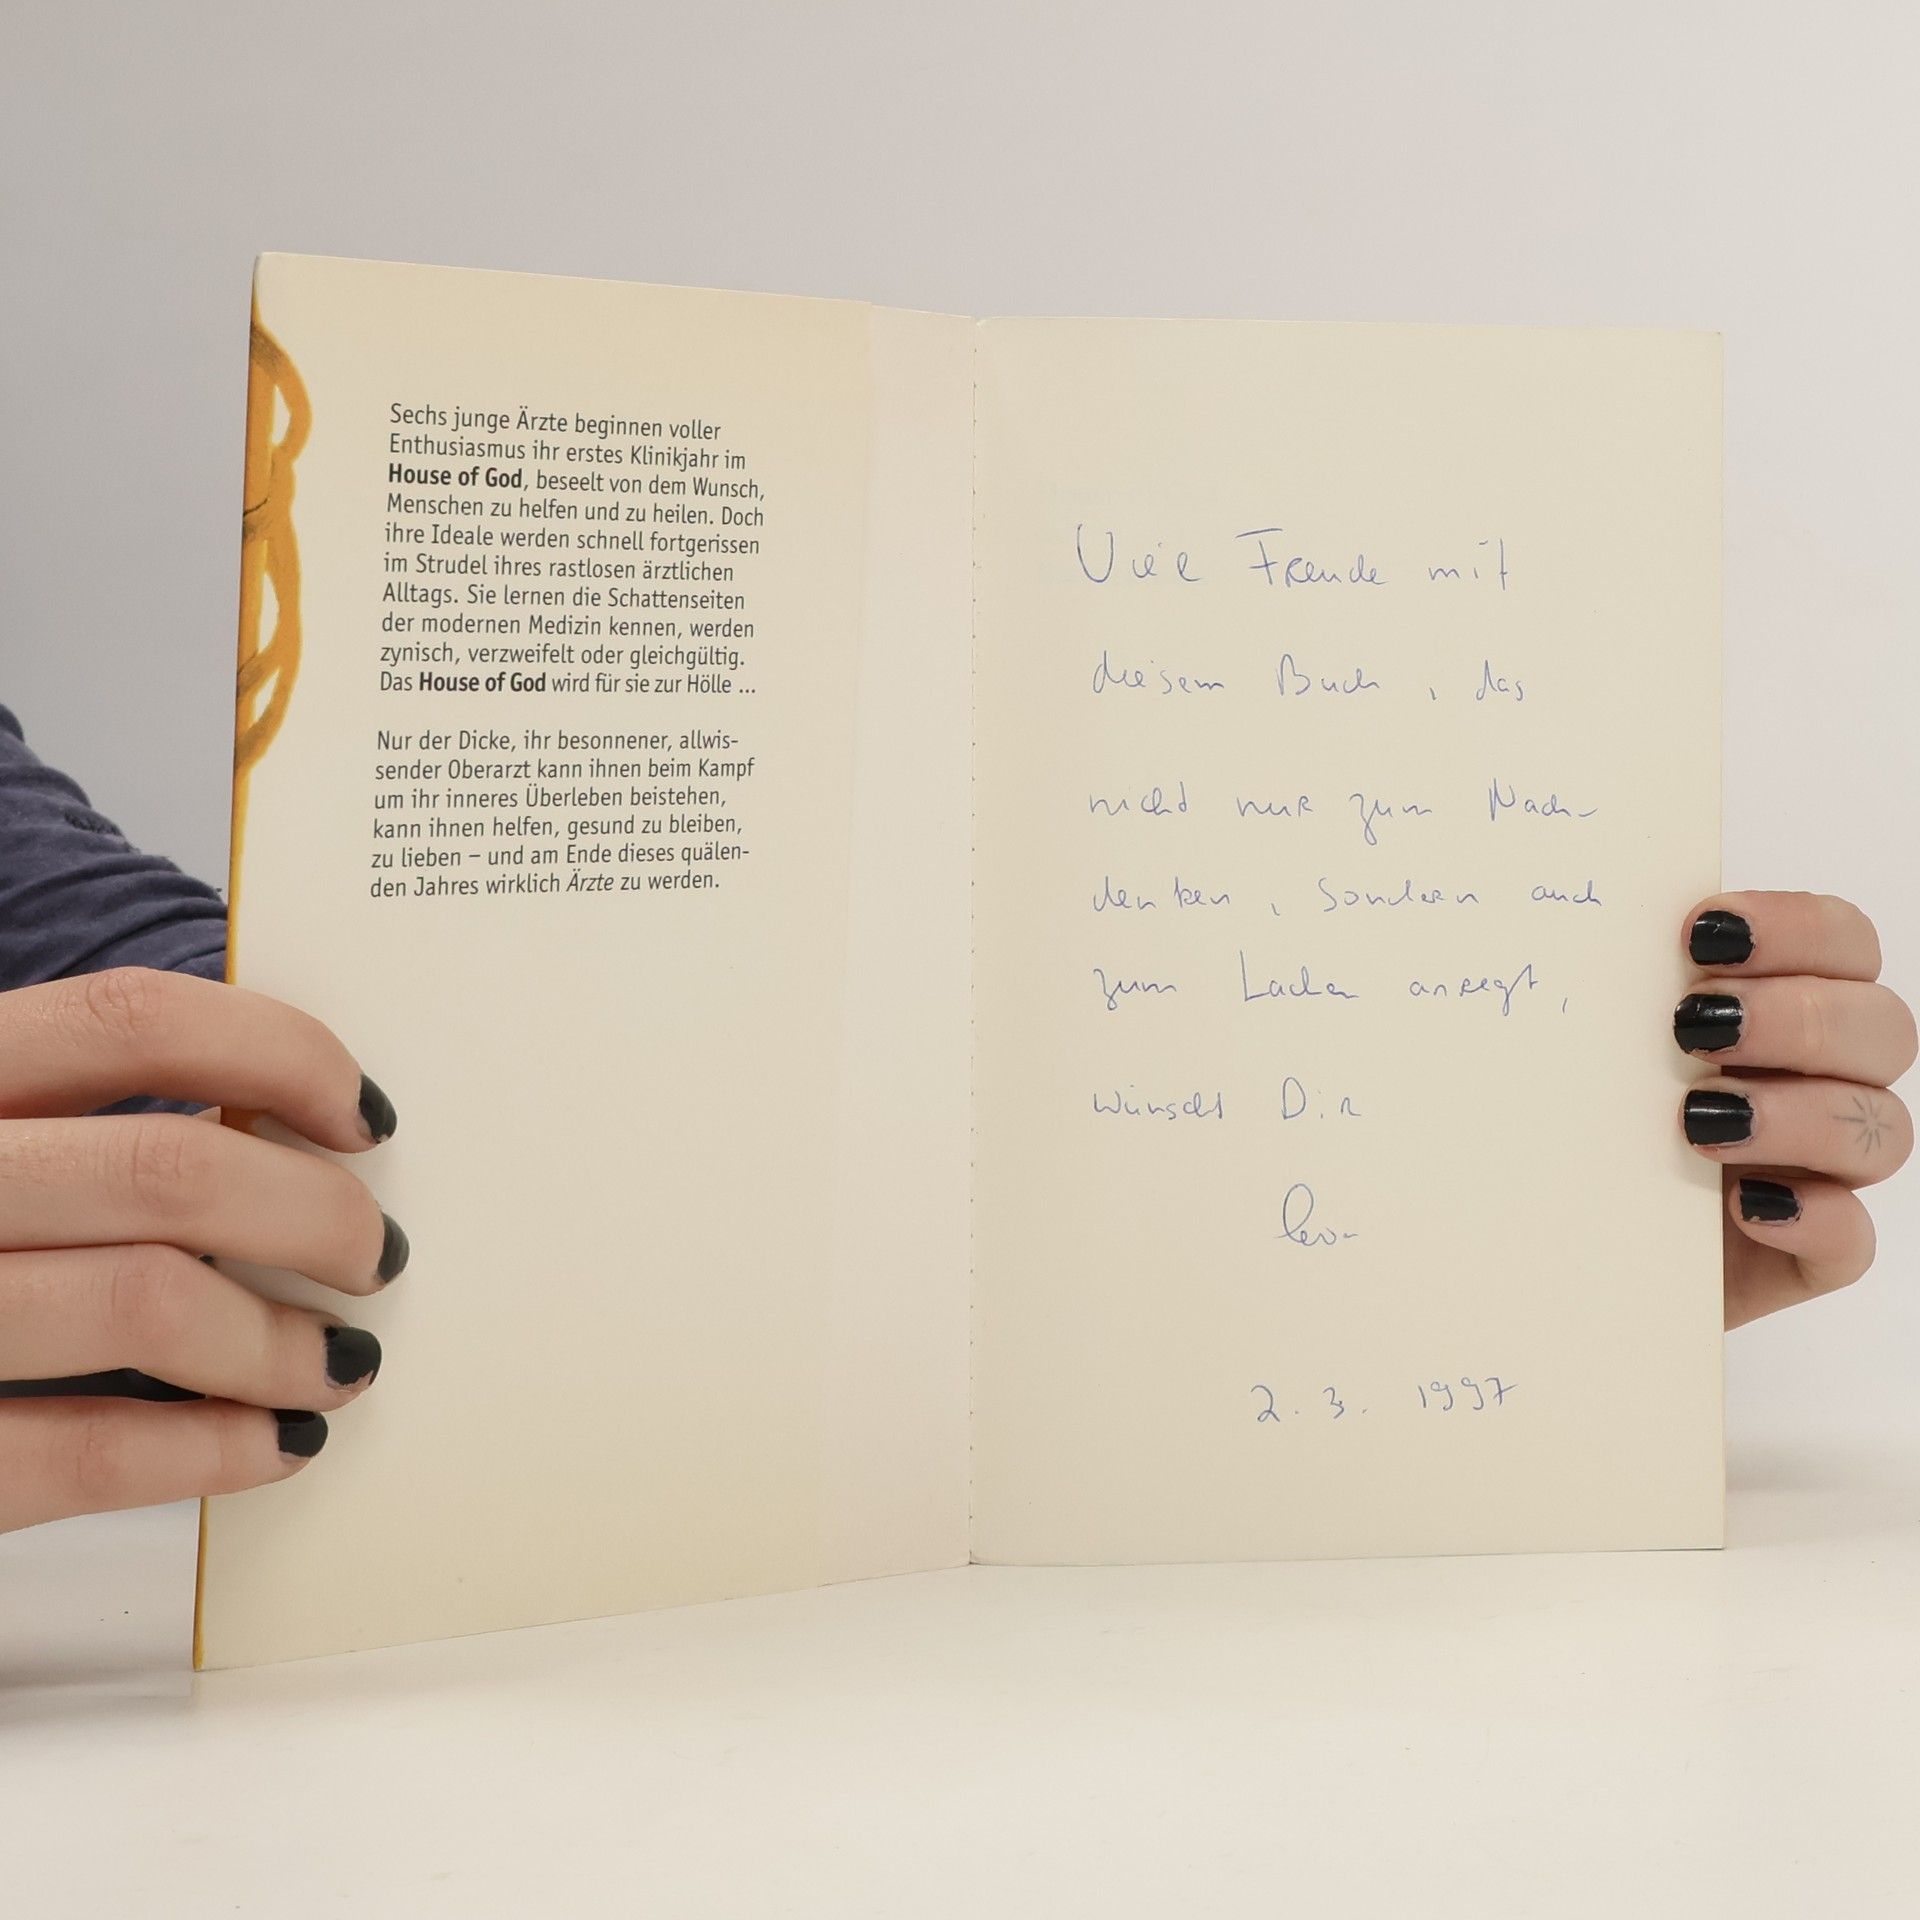 Sechs junge Ärzte beginnen voller
Enthusiasmus ihr erstes Klinikjahr im
House of God, beseelt von dem Wunsch,
Menschen zu helfen und zu heilen. Doch
ihre Ideale werden schnell fortgerissen
im Strudel ihres rastlosen ärztlichen
Alltags. Sie lernen die Schattenseiten
der modernen Medizin kennen, werden
zynisch, verzweifelt oder gleichgültig.
Das House of God wird für sie zur Hölle ...
Nur der Dicke, ihr besonnener, allwis-
sender Oberarzt kann ihnen beim Kampf
um ihr inneres Überleben beistehen,
kann ihnen helfen, gesund zu bleiben,
zu lieben – und am Ende dieses quälen-
den Jahres wirklich Ärzte zu werden.
Viele Freude mit
diesem Buch, das
nicht nur zum Nach-
denken, sondern auch
zum Lachen anregt,
wünscht Dir
2. 3. 1997